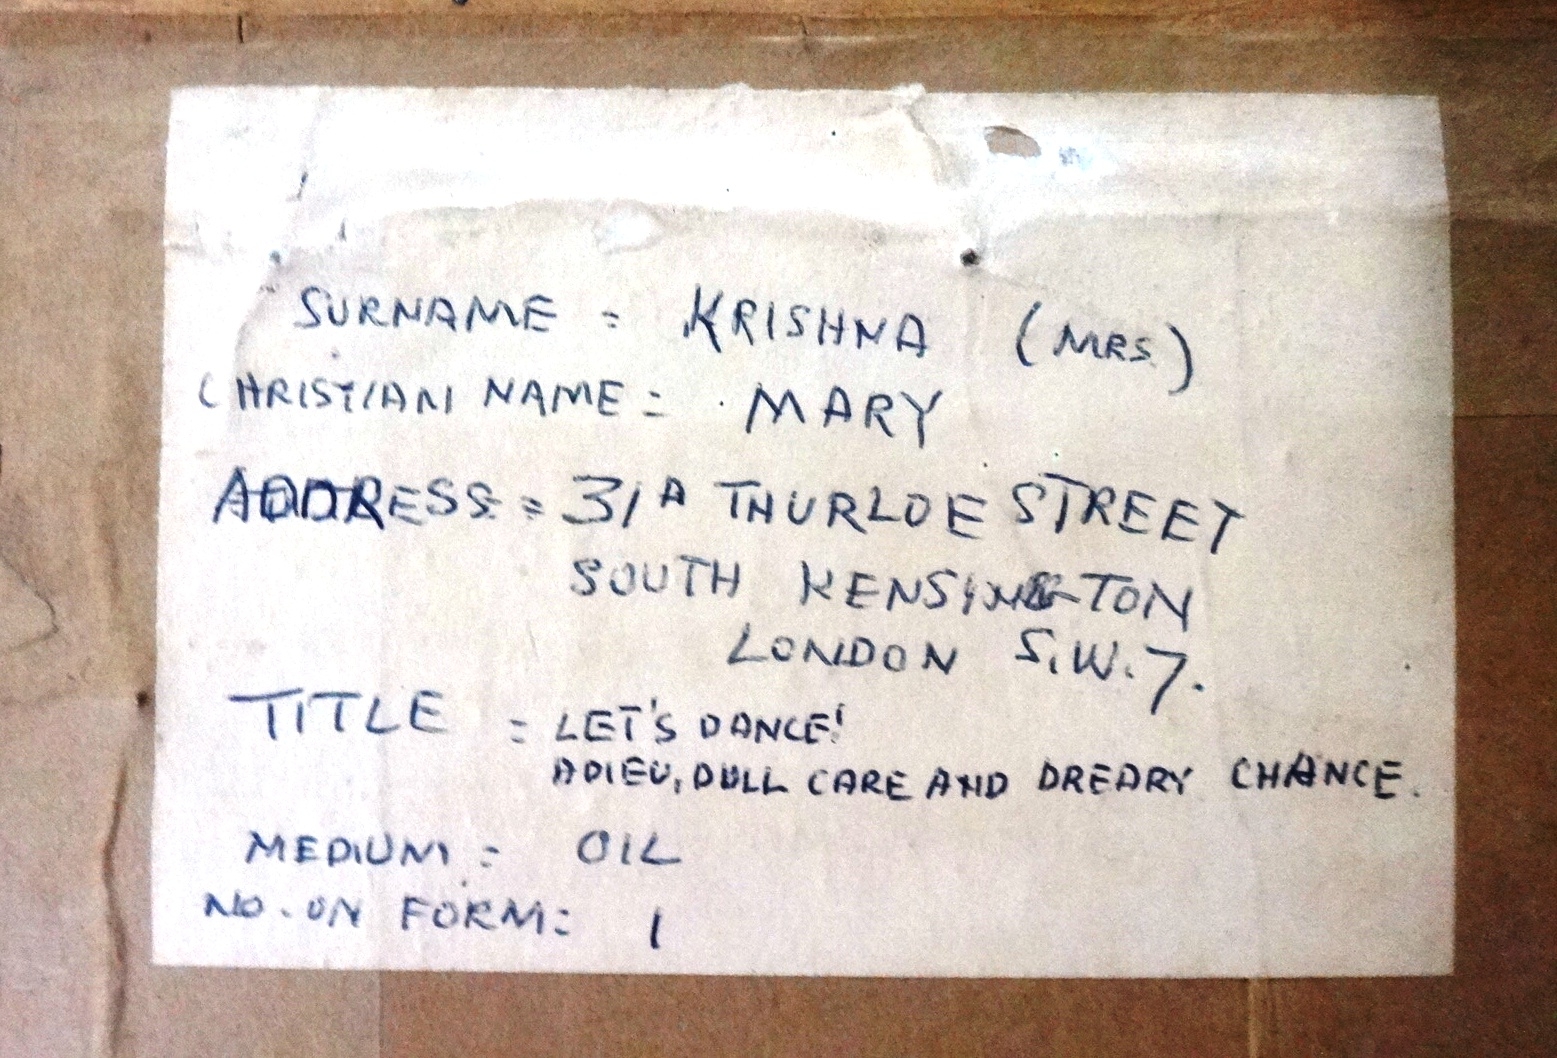 SURNAME = KRISHNA (MRS.)
CHRISTIAN NAME = MARY
ADDRESS = 31A THURLOE STREET
SOUTH KENSINGTON
LONDON S.W.7.
TITLE = LET'S DANCE!
ADIEU, DULL CARE AND DREARY CHANCE.
MEDIUM = OIL
NO. ON FORM = 1